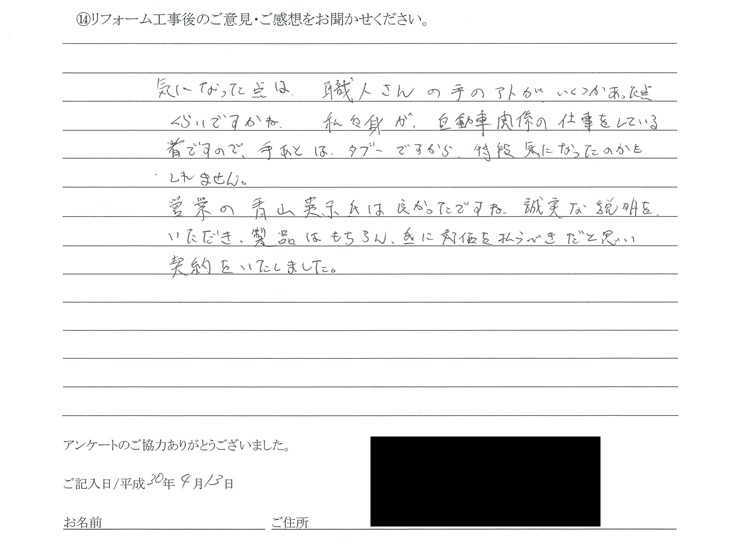 ⑭リフォーム工事後のご意見・ご感想をお聞かせください。
気になった点は、職人さんの手のアトが、いくつかあった点
くらいですかね。 私自身が、自動車関係の仕事をしている
者ですので、手あとは、タブーですから、特段気になったのかも
しれません。
営業の青山英示氏は良かったですね。誠実な説明を、
いただき、製品はもちろん、 に対価を払うべきだと思い
契約をいたしました。
アンケートのご協力ありがとうございました。
ご記入日/平成30年4月13日
お名前 ご住所